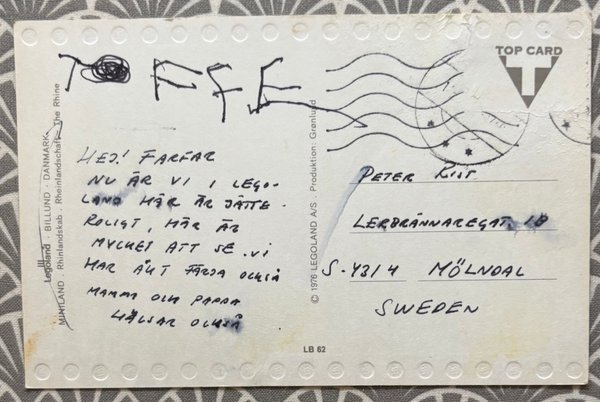 TOFFE
HEJ! FARFAR
NU ÄR VI I LEGO-
LAND HÄR ÄR JÄTTE-
ROLIGT, HÄR ÄR
MYCKET ATT SE. VI
HAR ÅKT FÄRJA OCKSÅ
MAMMA OCH PAPPA
HÄLSAR OCKSÅ
Legoland · BILLUND · DANMARK
MINILAND · Rhinlandskab · Rheinlandschaft · The Rhine
© 1976 LEGOLAND A/S · Produktion: Grønlund
TOP CARD
T
PETER
LERBRÄNNAREGAT. 1B
S-4314 MÖLNDAL
SWEDEN
LB 62